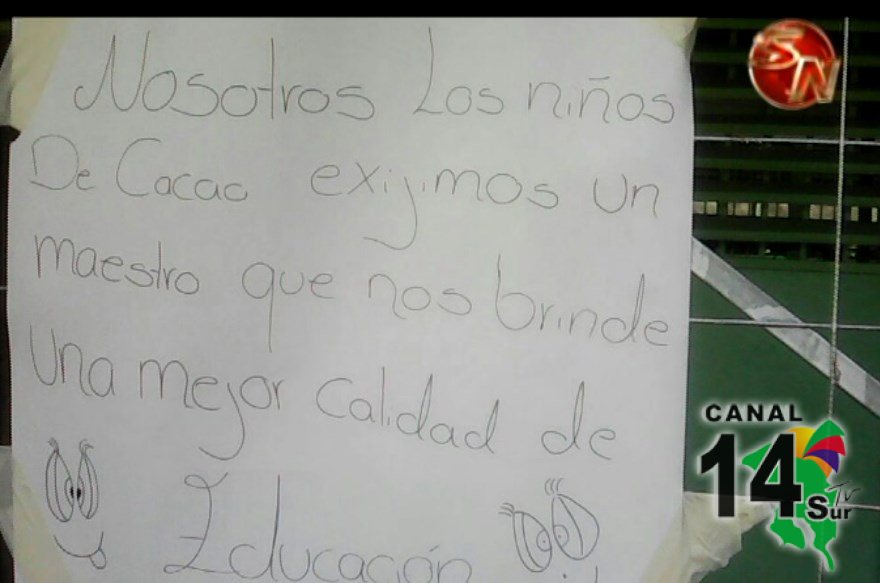 Nosotros Los niños
De Cacao exijimos un
maestro que nos brinde
una mejor calidad de
Educación
SN
CANAL
14
Tv
Sur